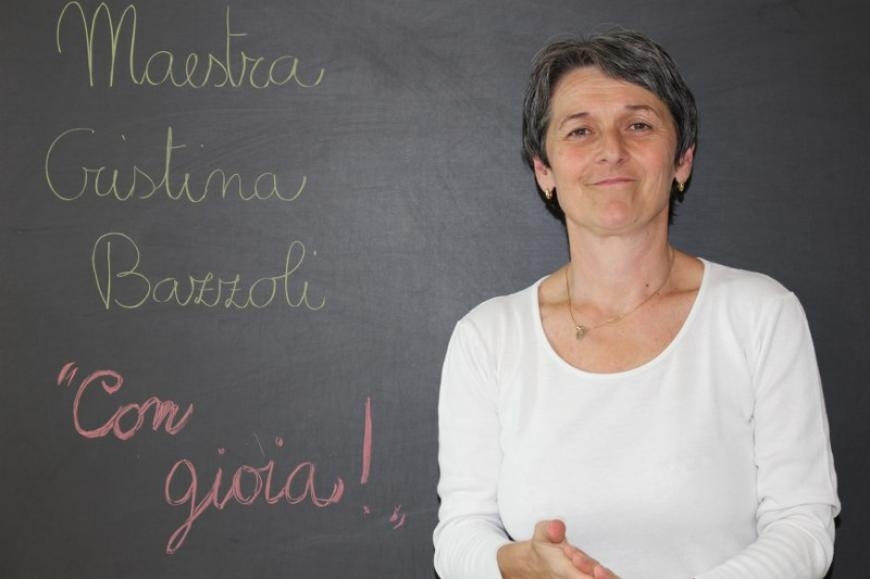 Maestra
Cristina
Bazzoli
“Con
gioia!„